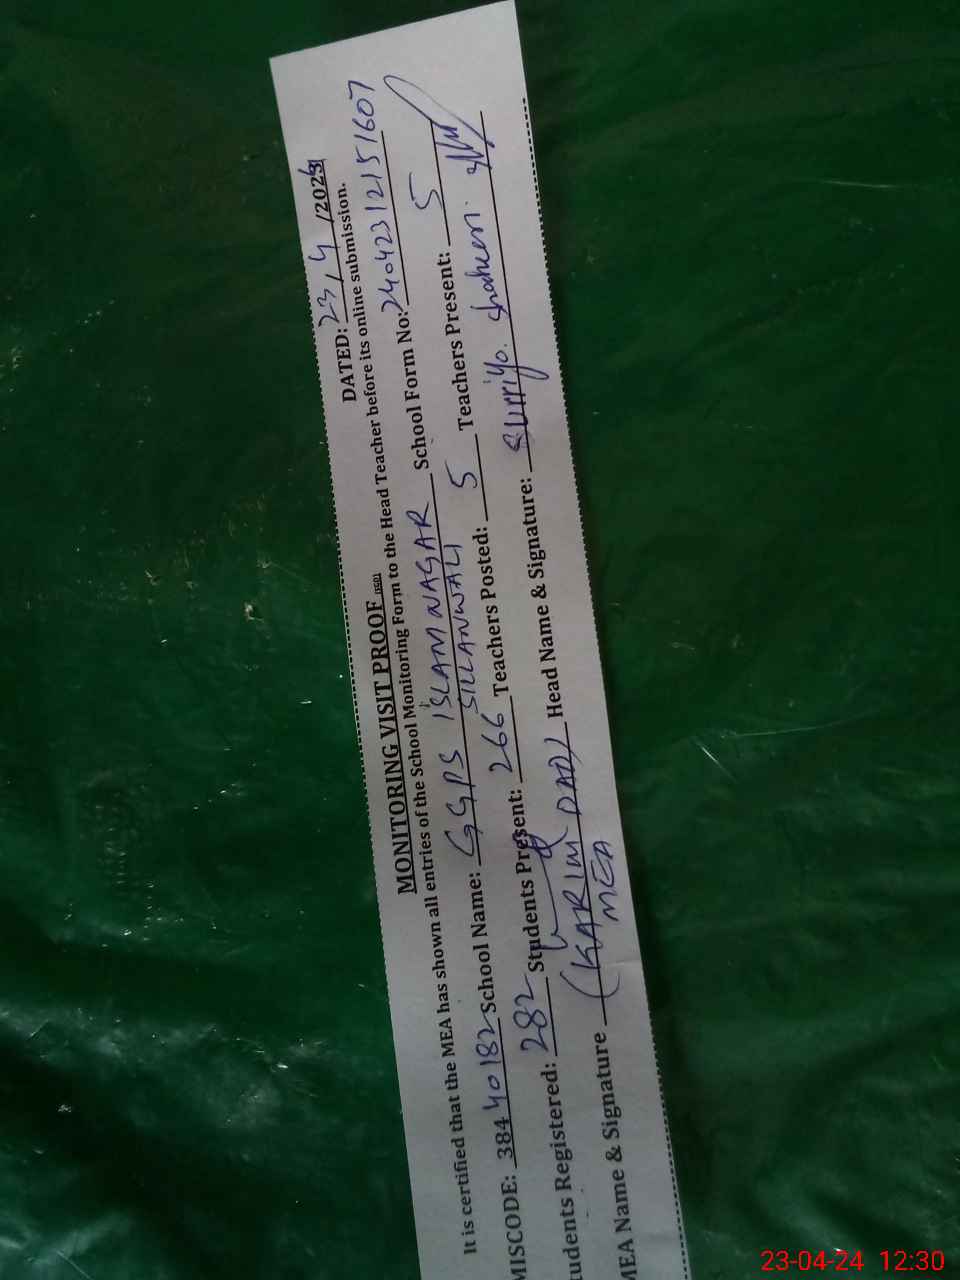 MONITORING VISIT PROOF
DATED: 23/4/2024
It is certified that the MEA has shown all entries of the School Monitoring Form to the Head Teacher before its online submission.
MISCODE: 38440182 School Name: GGPS ISLAM NAGAR SILLANWALI School Form No: 24042312151607
tudents Registered: 282 Students Present: 266 Teachers Posted: 5 Teachers Present: 5
MEA Name & Signature (KARIM DAD) MEA Head Name & Signature: Surriya Shaheen
23-04-24 12:30